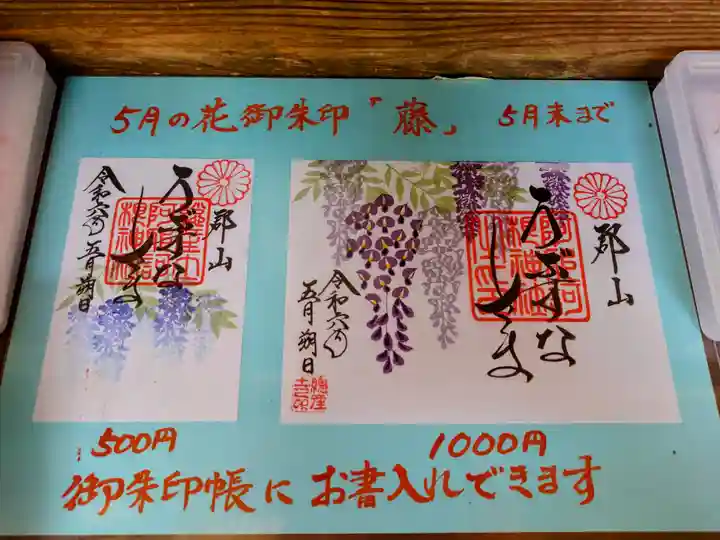 5月の花御朱印「藤」 5月末まで
郡山
うぶすな
しさま
令和六年
五月朔日
郡山
うぶすな
しさま
令和六年
五月朔日
500円
1000円
御朱印帳にお書入れできます